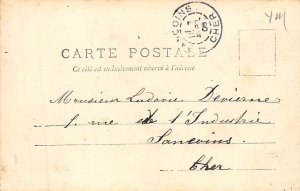 CARTE POSTALE
Ce côté est exclusivement réservé à l'adresse
COINS
CHER
Monsieur Ludovic Devierne
1. rue de l'Industrie
Sancoins
Cher